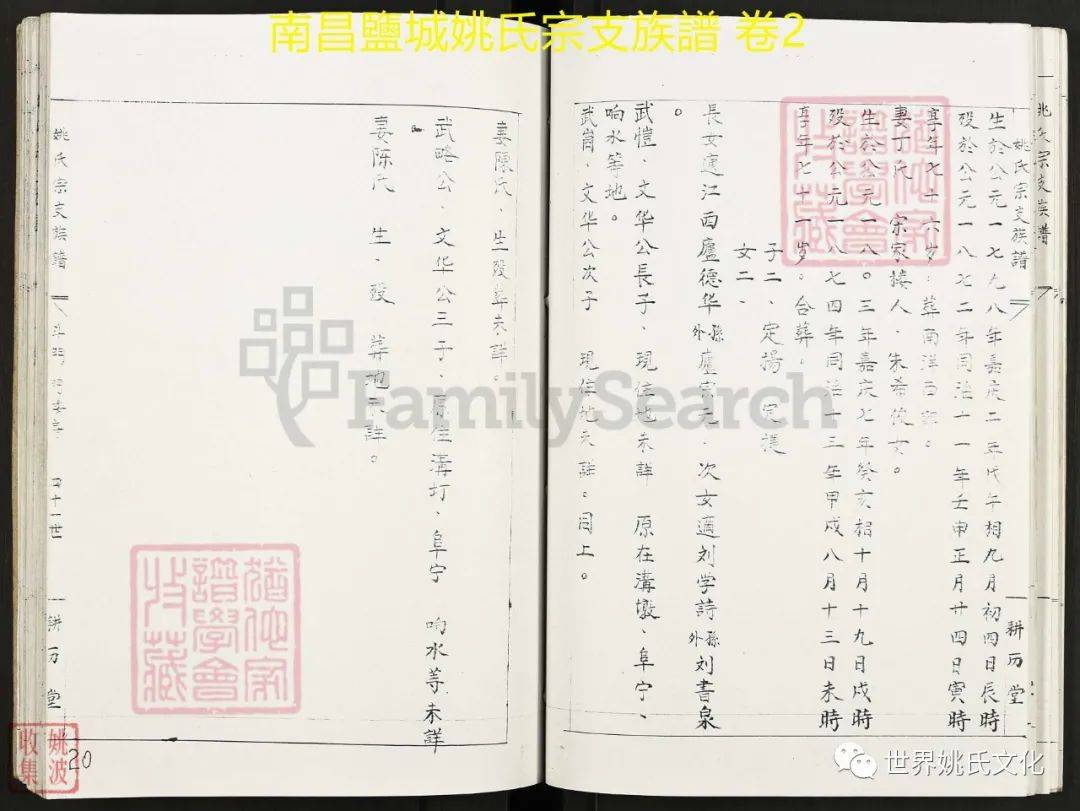 南昌鹽城姚氏宗支族譜 卷2
姚氏宗支族譜
耕历堂
生於公元一七九八年嘉庆二年戊午相九月初四日辰時
殁於公元一八七二年同治十一年壬申正月廿四日寅時
享年七十六岁．葬南洋西
妻丁氏 宗家楼人．朱希俊女。
生於公元一八〇三年嘉庆七年癸亥相十月十九日戌時
殁於公元一八七四年同治一三年甲戌八月十三日未時
享年七十一岁。合葬。
子二、定揚 定
女二、
長女適江西廬德华 外孫廬 元．次女適刘学詩 外孫刘書泉
。
武愷．文华公長子、現住地未詳 原在溝墩、阜宁、
响水等地。
武崗．文华公次子 現住地未註．同上。
妻張氏、生殁葬未詳。
武略公．文华公三子．原住溝圢、阜宁 响水等未詳
妻陈氏 生．殁 葬地不詳。
姚氏宗支族譜
四十一世
耕历堂
20
猶他家譜學會收藏
猶他家譜學會收藏
姚波收集
FamilySearch
世界姚氏文化